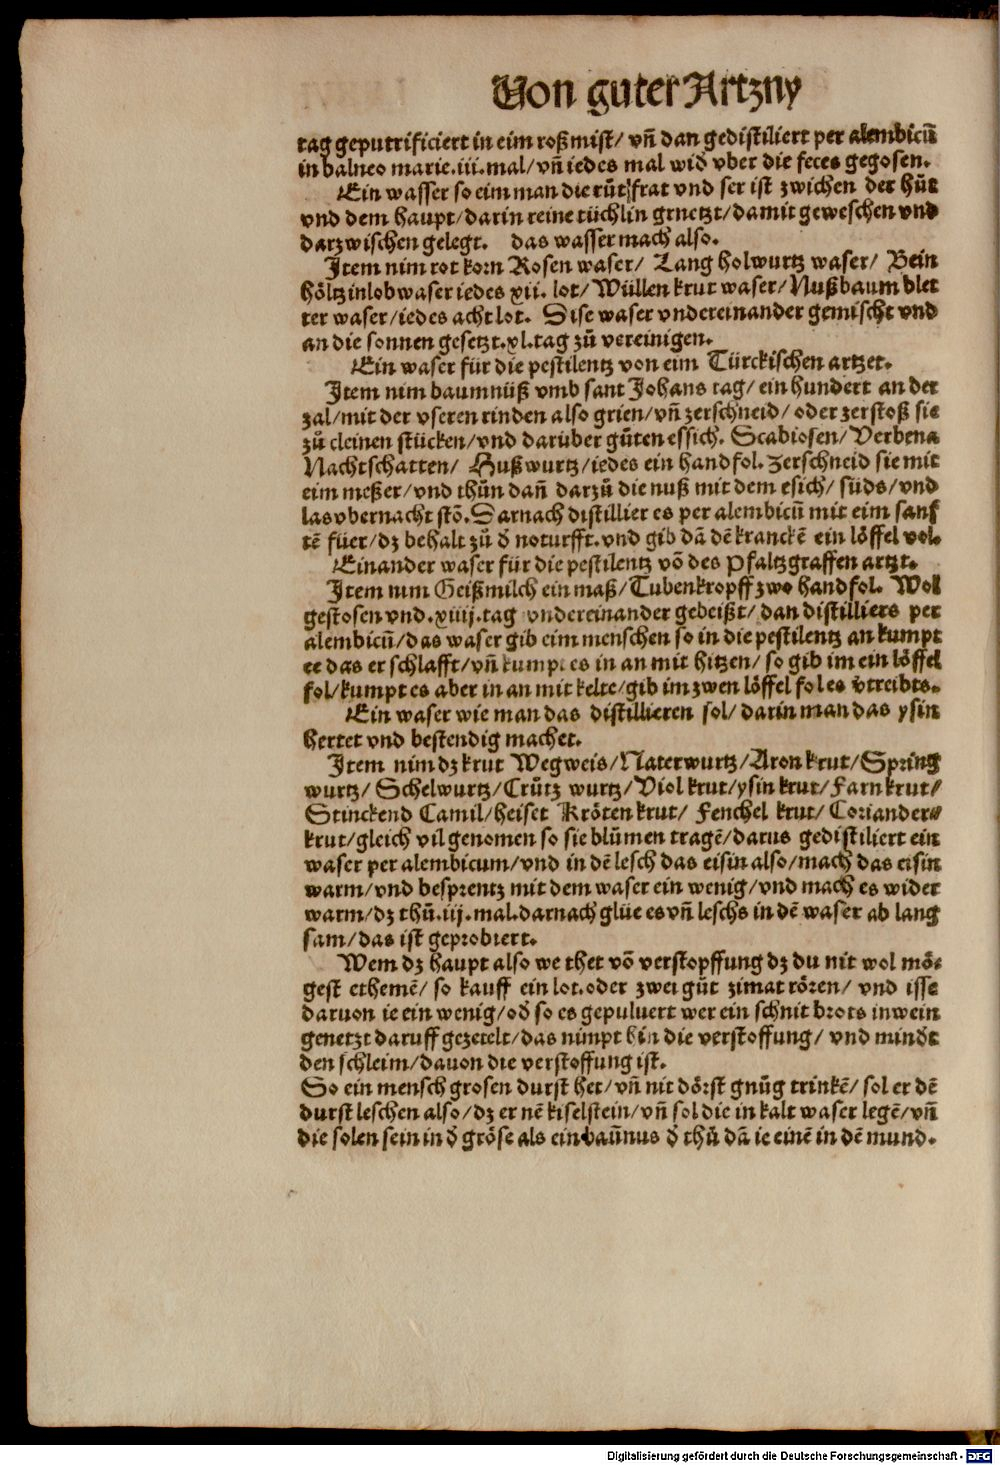 Von guter Artzny
tag geputrificiert in eim roßmist/ vñ dan gedistiliert per alembicū
in balneo marie.iii.mal/vñ iedes mal wid̄ vber die feces gegosen.
Ein wasser so eim man die růt frat vnd ser ist zwichen der hůt
vnd dem haupt/darin reine tüchlin gnetzt/damit geweschen vnd
darzwischen gelegt. das wasser mach also.
Item nim rot korn Rosen waser/ Lang holwurtz waser/ Bein
höltzinlob waser iedes xii. lot/Wüllen krut waser/Nußbaum blet
ter waser/iedes acht lot. Dise waser vndereinander gemischt vnd
an die sonnen gesetzt.xl.tag zů vereinigen.
Ein waser für die pestilentz von eim Türckischen artzet.
Item nim baumnüß vmb sant Johans tag/ein hundert an der
zal/mit der vseren rinden also grien/vñ zerschneid/oder zerstoß sie
zů cleinen stücken/vnd darüber gůten essich. Scabiosen/Verbena
Nachtschatten/ Hußwurtz/iedes ein handfol. Zerschneid sie mit
eim meßer/vnd thůn dañ darzů die nuß mit dem esich/ süds/vnd
las vbernacht stō. Darnach distillier es per alembicū mit eim sanf
tē füer/dz behalt zů d̄ noturfft.vnd gib dā dē kranckē ein löffel vol.
Ein ander waser für die pestilentz vō des Pfaltzgraffen artzt.
Item nim Geißmilch ein maß/Tubenkropff zwo handfol. Wol
gestosen vnd.xiiij.tag vndereinander gebeißt/dan distilliers per
alembicū/das waser gib eim menschen so in die pestilentz an kumpt
ee das er schlafft/vñ kumpt es in an mit hitzen/so gib im ein löffel
fol/kumpt es aber in an mit kelte/gib im zwen löffel fol es v̄treibts.
Ein waser wie man das distillieren sol/darin man das ysin
hertet vnd bestendig machet.
Item nim dz krut Wegweis/Naterwurtz/Aron krut/Spring
wurtz/ Schelwurtz/Crütz wurtz/Viol krut/ysin krut/Farnkrut/
Stinckend Camil/heiset Krötenkrut/ Fenchel krut/Coriander⸗
krut/gleich vil genomen so sie blůmen tragē/darus gedistiliert ein
waser per alembicum/vnd in dē lesch das eisin also/mach das eisin
warm/vnd besprentz mit dem waser ein wenig/vnd mach es wider
warm/dz thů.iij.mal.darnach glüe es vñ leschs in dē waser ab lang
sam/das ist geprobiert.
Wem dz haupt also we thet vō verstopffung dz du nit wol mö⸗
gest ethemē/so kauff ein lot.oder zwei gůt zimat rören/ vnd isse
daruon ie ein wenig/od̄ so es gepuluert wer ein schnit brots in wein
genetzt daruff gezetelt/das nimpt hin die verstoffung/vnd mind̄t
den schleim/dauon die verstoffung ist.
So ein mensch grosen durst het/vñ nit dörst gnůg trinkē/sol er dē
durst leschen also/dz er nē kiselstein/vñ sol die in kalt waser legē/vñ
die solen sein in d̄ gröse als ein baůnus d̄ thů dā ie einē in dē mund.
Digitalisierung gefördert durch die Deutsche Forschungsgemeinschaft - DFG